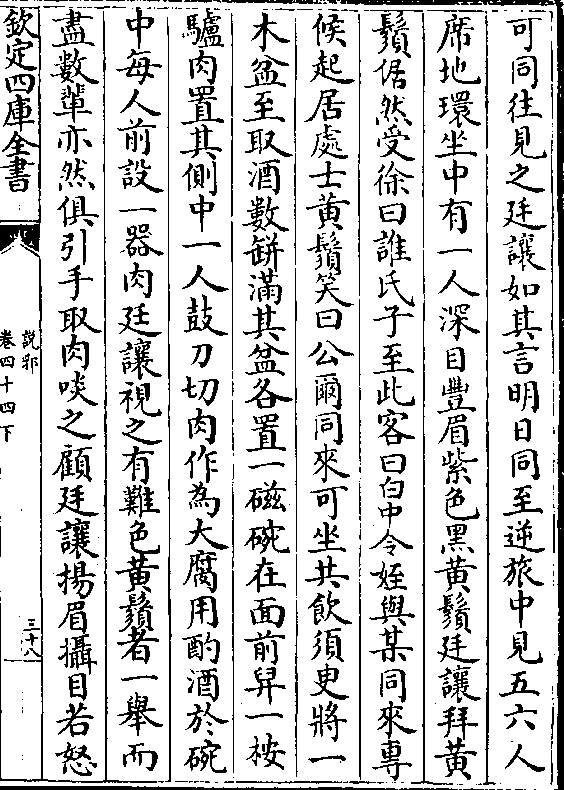 可同往見之廷讓如其言明日同至逆旅中見五六人
席地環坐中有一人深目豐眉紫色黑黄鬚廷讓拜黄
鬚倨然受徐曰誰氏子至此客曰白中令姪與某同來專
候起居處士黄鬚笑曰公爾同來可坐共飲須臾將一
木盆至取酒數缾滿其盆各置一磁碗在面前舁一桉
驢肉置其側中一人鼓刀切肉作為大臠用酌酒於碗
中每人前設一器肉廷讓視之有難色黄鬚者一舉而
盡數輩亦然俱引手取肉啖之顧廷讓揚眉攝目若怒
欽定四庫全書
說郛
卷四十四下
三十八